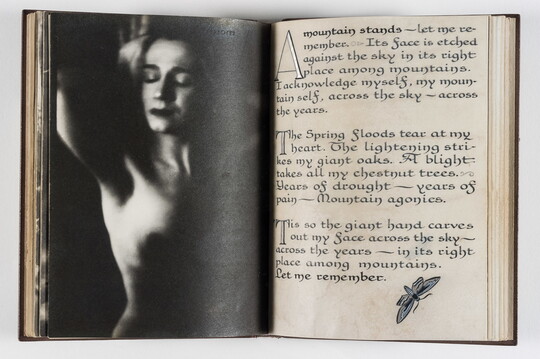 A mountain stands — let me re-
member. Its face is etched
against the sky in its right
place among mountains.
I acknowledge myself, my moun-
tain self, across the sky — across
the years.
The Spring floods tear at my
heart. The lightening stri-
kes my giant oaks. A blight
takes all my chestnut trees.
Years of drought — years of
pain — Mountain agonies.
Tis so the giant hand carves
out my face across the sky —
across the years — in its right
place among mountains.
Let me remember.